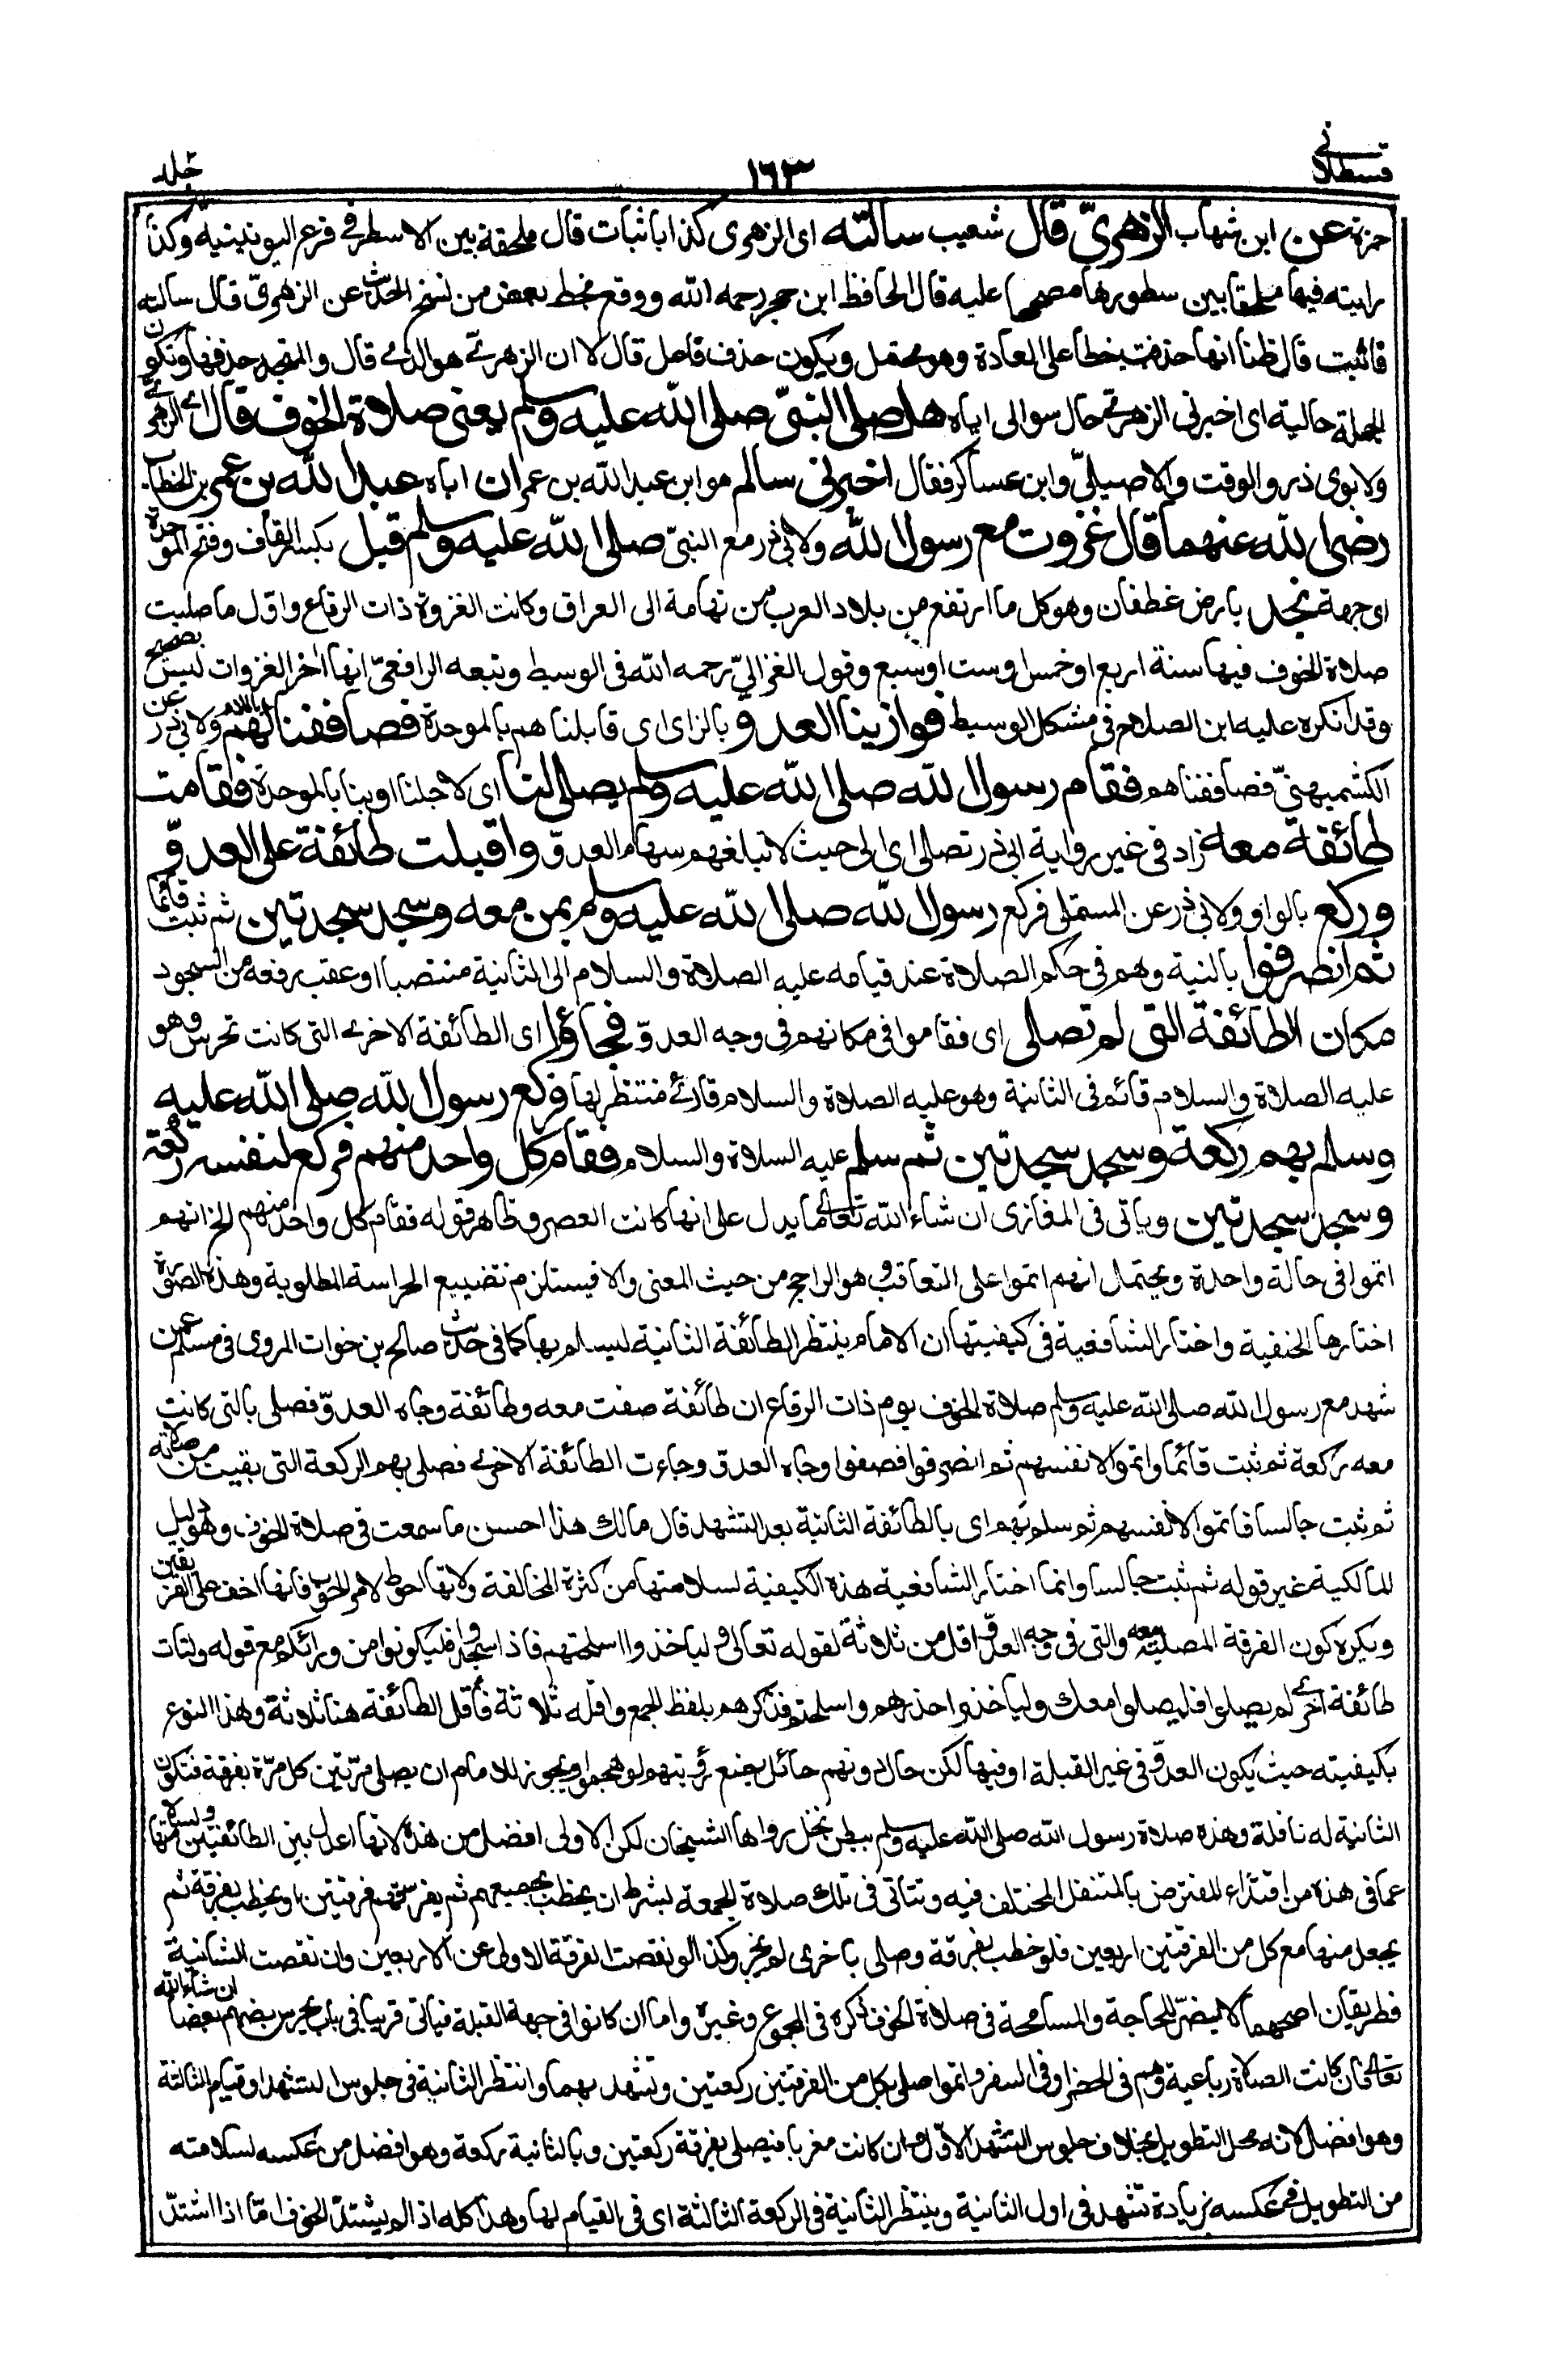 قسطلانی
١٦٣
جلد
حمزة عن ابن شهاب الزهريّ قال شعيب سالته اى الزهرى كذا باثبات قال ملحقة بين الاسطر فى فرع اليونينية وكذا
رايته فيها ملحقا بين سطورها مصححا عليه قال الحافظ ابن حجر رحمه الله ووقع بخط بعض من نسخ الحديث عن الزهرىّ قال سالته
فاثبت قال ظنا انها حذفت خطا على العادة وهو محتمل ويكون حذف فاعل قال لا ان الزهرى هو الذى قال والمتجه حذفها وتكون
الجملة حالية اى اخبرنى الزهرى حال سوالى اياه هل صلى النبىّ صلى الله عليه وسلم يعنى صلاة الخوف قال اى الزهرى
ولابوى ذر والوقت والاصيلىّ وابن عساكر فقال اخبرنى سالم هو ابن عبد الله بن عمر ان اباه عبد الله بن عمر بن الخطاب
رضى الله عنهما قال غزوت مع رسول الله ولابى ذر مع النبىّ صلى الله عليه وسلم قبل بكسر القاف وفتح الموحدة
اى جهة نجد بارض غطفان وهو كل ما ارتفع من بلاد العرب من تهامة الى العراق وكانت الغزوة ذات الرقاع واوّل ما صليت
صلاة الخوف فيها سنة اربع او خمس او ست او سبع وقول الغزالىّ رحمه الله فى الوسيط وتبعه الرافعىّ انها اخر الغزوات ليس بصحيح
وقد انكره عليه ابن الصلاح فى مشكل الوسيط فوازينا العدو بالزاى اى قابلناهم بالموحدة فصاففنا لهم باللام ولابى ذر عن
الكشميهنىّ فصاففناهم فقام رسول الله صلى الله عليه وسلم يصلى لنا اى لاجلنا او بنا بالموحدة فقامت
طائفة معه زاد فى غير رواية ابى ذر تصلى اى الى حيث لا تبلغهم سهام العدوّ واقبلت طائفة على العدوّ
وركع بالواو ولابى ذر عن المستملى فركع رسول الله صلى الله عليه وسلم بمن معه وسجد سجدتين ثم ثبت قائما
ثم انصرفوا بالنية وهم فى حكم الصلاة عند قيامه عليه الصلاة والسلام الى الثانية منتصبا او عقب رفعه من السجود
مكان الطائفة التى لم تصلى اى فقاموا فى مكانهم فى وجه العدوّ فجاؤا اى الطائفة الاخرى التى كانت تحرس وهو
عليه الصلاة والسلام قائم فى الثانية وهو عليه الصلاة والسلام قارئ منتظر لها فركع رسول الله صلى الله عليه
وسلم بهم ركعة وسجد سجدتين ثم سلم عليه السلاة والسلام فقام كل واحد منهم فركع لنفسه ركعة
وسجد سجدتين وياتى فى المغازى ان شاء الله تعالى ما يدل على انها كانت العصر وظاهر قوله فقام كل واحد منهم الخ انهم
اتموا فى حالة واحدة ويحتمل انهم اتموا على التعاقب وهو الراجح من حيث المعنى والا فيستلزم تضييع الحراسة المطلوبة وهذه الصورة
اختارها الحنفية واختار الشافعية فى كيفيتها ان الامام ينتظر الطائفة الثانية ليسلم بها كما فى حديث صالح بن خوات المروى فى مسلم عمن
شهد مع رسول الله صلى الله عليه وسلم صلاة الخوف يوم ذات الرقاع ان طائفة صفت معه وطائفة وجاه العدوّ فصلى بالتى كانت
معه ركعة ثم ثبت قائما واتموا لانفسهم ثم انصرفوا فصفوا وجاه العدوّ وجاءت الطائفة الاخرى فصلى بهم الركعة التى بقيت من صلاته
ثم ثبت جالسا فاتموا لانفسهم ثم سلم بهم اى بالطائفة الثانية بعد التشهد قال مالك هذا احسن ما سمعت فى صلاة الخوف وهو دليل
للمالكية غير قوله ثم ثبت جالسا وانما اختار الشافعية هذه الكيفية لسلامتها من كثرة المخالفة ولانها احوط لامر الحرب فانها اخف على الفريقين
ويكره كون الفرقة المصلية معه والتى فى وجه العدوّ اقل من ثلاثة لقوله تعالى وليا خذوا اسلحتهم فاذا سجدوا فليكونوا من ورائكم مع قوله ولتات
طائفة اخرى لم يصلوا فليصلوا معك وليا خذوا حذرهم واسلحتهم فذكرهم بلفظ الجمع واقله ثلاثة فأقل الطائفة هنا ثلاثة وهذا النوع
بكيفيته حيث يكون العدوّ فى غير القبلة او فيها لكن حال دونهم حائل يمنع رؤيتهم لو هجموا ويجوز للامام ان يصلى مرّتين كل مرّة بفرقة فتكون
الثانية له نافلة وهذه صلاة رسول الله صلى الله عليه وسلم ببطن نخل رواها الشيخان لكن الاولى افضل من هذه لانها اعدل بين الطائفتين ولسلامتها
عما فى هذه من اقتداء المفترض بالمتنفل المختلف فيه وتتاتى فى تلك صلاة الجمعة بشرط ان يخطب بجميعهم ثم يفرقهم فرقتين او يخطب بفرقة ثم
يجعل منها مع كل من الفرقتين اربعين فلو خطب بفرقة وصلى باخرى لم يجز وكذا لو نقصت الفرقة الاولى عن الاربعين وان نقصت الثانية
فطريقان اصحهما لا يضرّ للحاجة والمسامحة فى صلاة الخوف ذكره فى المجموع وغيره واما ان كانوا فى جهة القبلة فياتى قريبا فى باب يحرس بعضهم بعضا ان شاء الله
تعالى فان كانت الصلاة رباعية وهم فى الحضر او فى السفر واتموا صلى بكل من الفرقتين ركعتين وتشهد بهما وانتظر الثانية فى جلوس التشهد او قيام الثالثة
وهو افضل لانه محل التطويل بخلاف جلوس التشهد الاوّل وان كانت مغربا فيصلى بفرقة ركعتين وبالثانية ركعة وهو افضل من عكسه لسلامته
من التطويل فى عكسه بزيادة تشهد فى اول الثانية وينتظر الثانية فى الركعة الثالثة اى فى القيام لها وهذا كله اذا لم يشتدّ الخوف امّا اذا اشتدّ